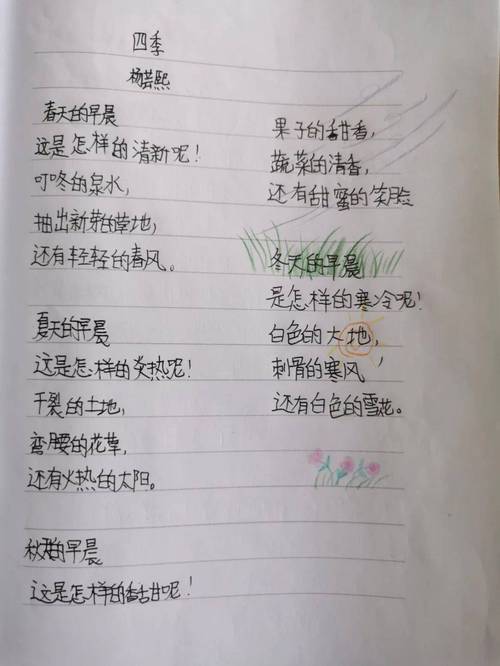 四季
杨芸熙
春天的早晨
这是怎样的清新呢！
叮咚的泉水，
抽出新芽的草地，
还有轻轻的春风。
夏天的早晨
这是怎样的炎热呢！
干裂的土地，
弯腰的花草，
还有火热的太阳。
秋天的早晨
这是怎样的香甜呢！
果子的甜香，
蔬菜的清香，
还有甜蜜的笑脸
冬天的早晨
是怎样的寒冷呢！
白色的大地，
刺骨的寒风，
还有白色的雪花。